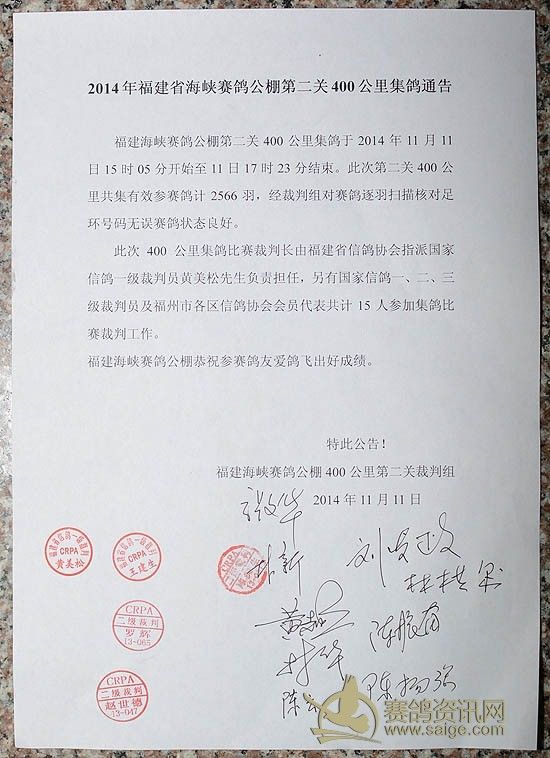 2014年福建省海峡赛鸽公棚第二关400公里集鸽通告
福建海峡赛鸽公棚第二关 400 公里集鸽于 2014 年 11 月 11
日 15 时 05 分开始至 11 日 17 时 23 分结束。此次第二关 400 公
里共集有效参赛鸽计 2566 羽，经裁判组对赛鸽逐羽扫描核对足
环号码无误赛鸽状态良好。
此次 400 公里集鸽比赛裁判长由福建省信鸽协会指派国家
信鸽一级裁判员黄美松先生负责担任，另有国家信鸽一、二、三
级裁判员及福州市各区信鸽协会会员代表共计 15 人参加集鸽比
赛裁判工作。
福建海峡赛鸽公棚恭祝参赛鸽友爱鸽飞出好成绩。
特此公告！
福建海峡赛鸽公棚 400 公里第二关裁判组
2014 年 11 月 11 日
CRPA
黄美松
CRPA
王建生
CRPA
二级裁判
罗辉
13-065
CRPA
二级裁判
赵世德
13-047
CRPA
赛鸽资讯网
www.saige.com